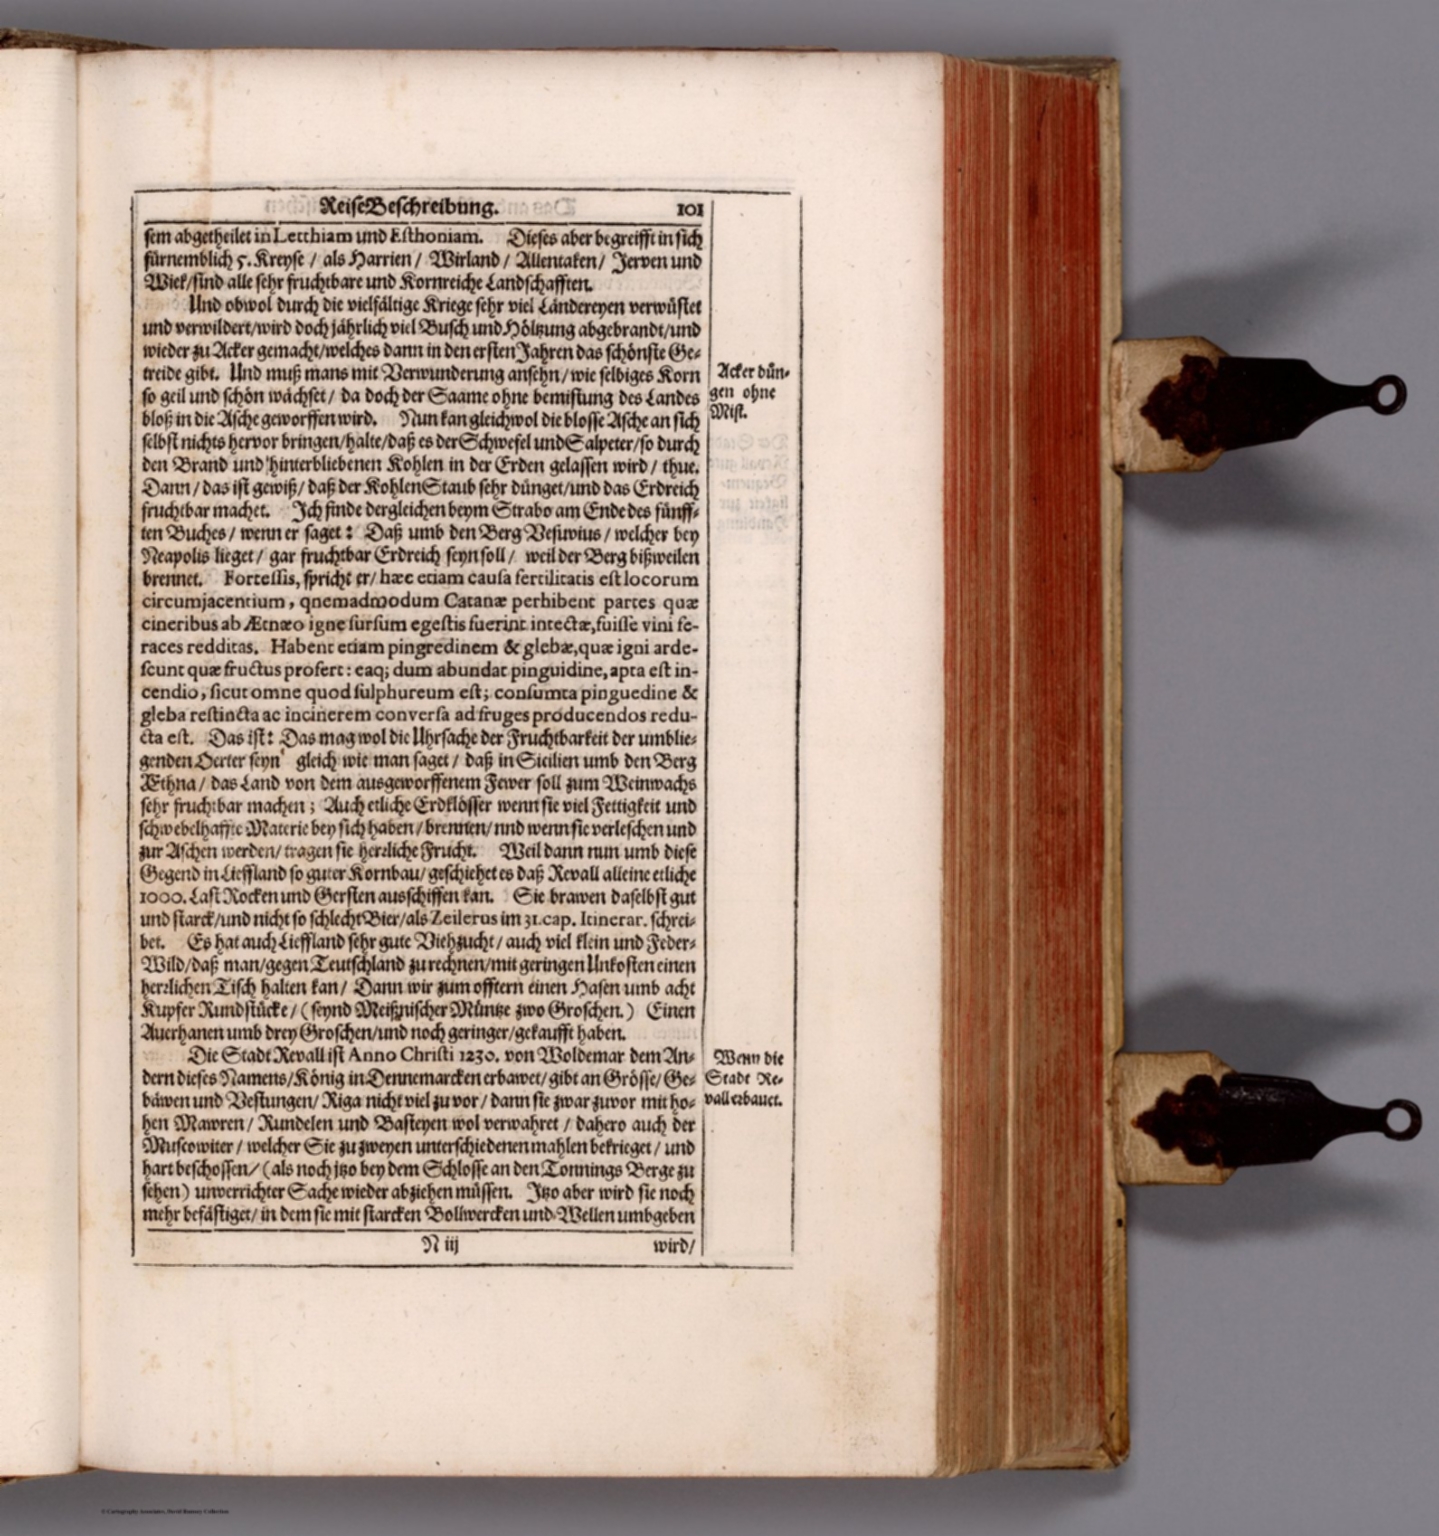 ReiseBeschreibung. 101
sem abgetheilet in Letthiam und Esthoniam. Dieses aber begreifft in sich
fürnemblich 5. Kreyse / als Harrien / Wirland / Allentaken / Jerven und
Wiek/sind alle sehr fruchtbare und Kornreiche Landschafften.
Und obwol durch die vielfältige Kriege sehr viel Ländereyen verwüstet
und verwildert/wird doch jährlich viel Busch und Höltzung abgebrandt/und
wieder zu Acker gemacht/welches dann in den ersten Jahren das schönste Ge-
treide gibt. Und muß mans mit Verwunderung ansehn/wie selbiges Korn
so geil und schön wächset / da doch der Saame ohne bemistung des Landes
bloß in die Asche geworffen wird. Nun kan gleichwol die blosse Asche an sich
selbst nichts hervor bringen/halte/daß es der Schwefel und Salpeter/so durch
den Brand und hinterbliebenen Kohlen in der Erden gelassen wird / thue.
Dann / das ist gewiß / daß der KohlenStaub sehr dünget/und das Erdreich
fruchtbar machet. Ich finde dergleichen beym Strabo am Ende des fünff-
ten Buches / wenn er saget: Daß umb den Berg Vesuvius / welcher bey
Neapolis lieget / gar fruchtbar Erdreich seyn soll / weil der Berg bißweilen
brennet. Fortessis, spricht er/ hæc etiam causa fertilitatis est locorum
circumjacentium, qnemadmodum Catanæ perhibent partes quæ
cineribus ab Ætnæo igne sursum egestis fuerint intectæ, fuisse vini fe-
races redditas. Habent etiam pingredinem & glebæ, quæ igni arde-
scunt quæ fructus profert: eaq; dum abundat pinguidine, apta est in-
cendio, sicut omne quod sulphureum est; consumta pinguedine &
gleba restincta ac incinerem conversa ad fruges producendos redu-
cta est. Das ist: Das mag wol die Uhrsache der Fruchtbarkeit der umblie-
genden Oerter seyn gleich wie man saget / daß in Sicilien umb den Berg
Æthna / das Land von dem ausgeworffenem Fewer soll zum Weinwachs
sehr fruchtbar machen; Auch etliche Erdklösser wenn sie viel Fettigkeit und
schwebelhaffte Materie bey sich haben / brennen/nnd wenn sie verleschen und
zur Aschen werden/ tragen sie herzliche Frucht. Weil dann nun umb diese
Gegend in Lieffland so guter Kornbau/ geschiehet es daß Revall alleine etliche
1000. Last Rocken und Gersten ausschiffen kan. Sie brawen daselbst gut
und starck/und nicht so schlecht Bier/als Zeilerus im 31. cap. Itinerar. schrei-
bet. Es hat auch Lieffland sehr gute Viehzucht / auch viel klein und Feder-
Wild/daß man/gegen Teutschland zu rechnen/mit geringen Unkosten einen
herzlichen Tisch halten kan / Dann wir zum offtern einen Hasen umb acht
Kupfer Rundstücke / (seynd Meißnischer Müntze zwo Groschen.) Einen
Auerhanen umb drey Groschen/und noch geringer/gekaufft haben.
Die Stadt Revall ist Anno Christi 1230. von Woldemar dem An-
dern dieses Namens/König in Dennemarcken erbawet/ gibt an Grösse/ Ge-
bäwen und Vestungen / Riga nicht viel zu vor / dann sie zwar zuvor mit ho-
hen Mawren / Rundelen und Basteyen wol verwahret / dahero auch der
Muscowiter / welcher Sie zu zweyen unterschiedenen mahlen bekrieget / und
hart beschossen / (als noch jtzo bey dem Schlosse an den Tonnings Berge zu
sehen) unverrichter Sache wieder abziehen müssen. Jtzo aber wird sie noch
mehr befästiget/ in dem sie mit starcken Bollwercken und Wellen umbgeben
N iij wird/
Acker dün-
gen ohne
Mist.
Wenn die
Stadt Re-
vall erbauet.
© Cartography Associates, David Rumsey Collection